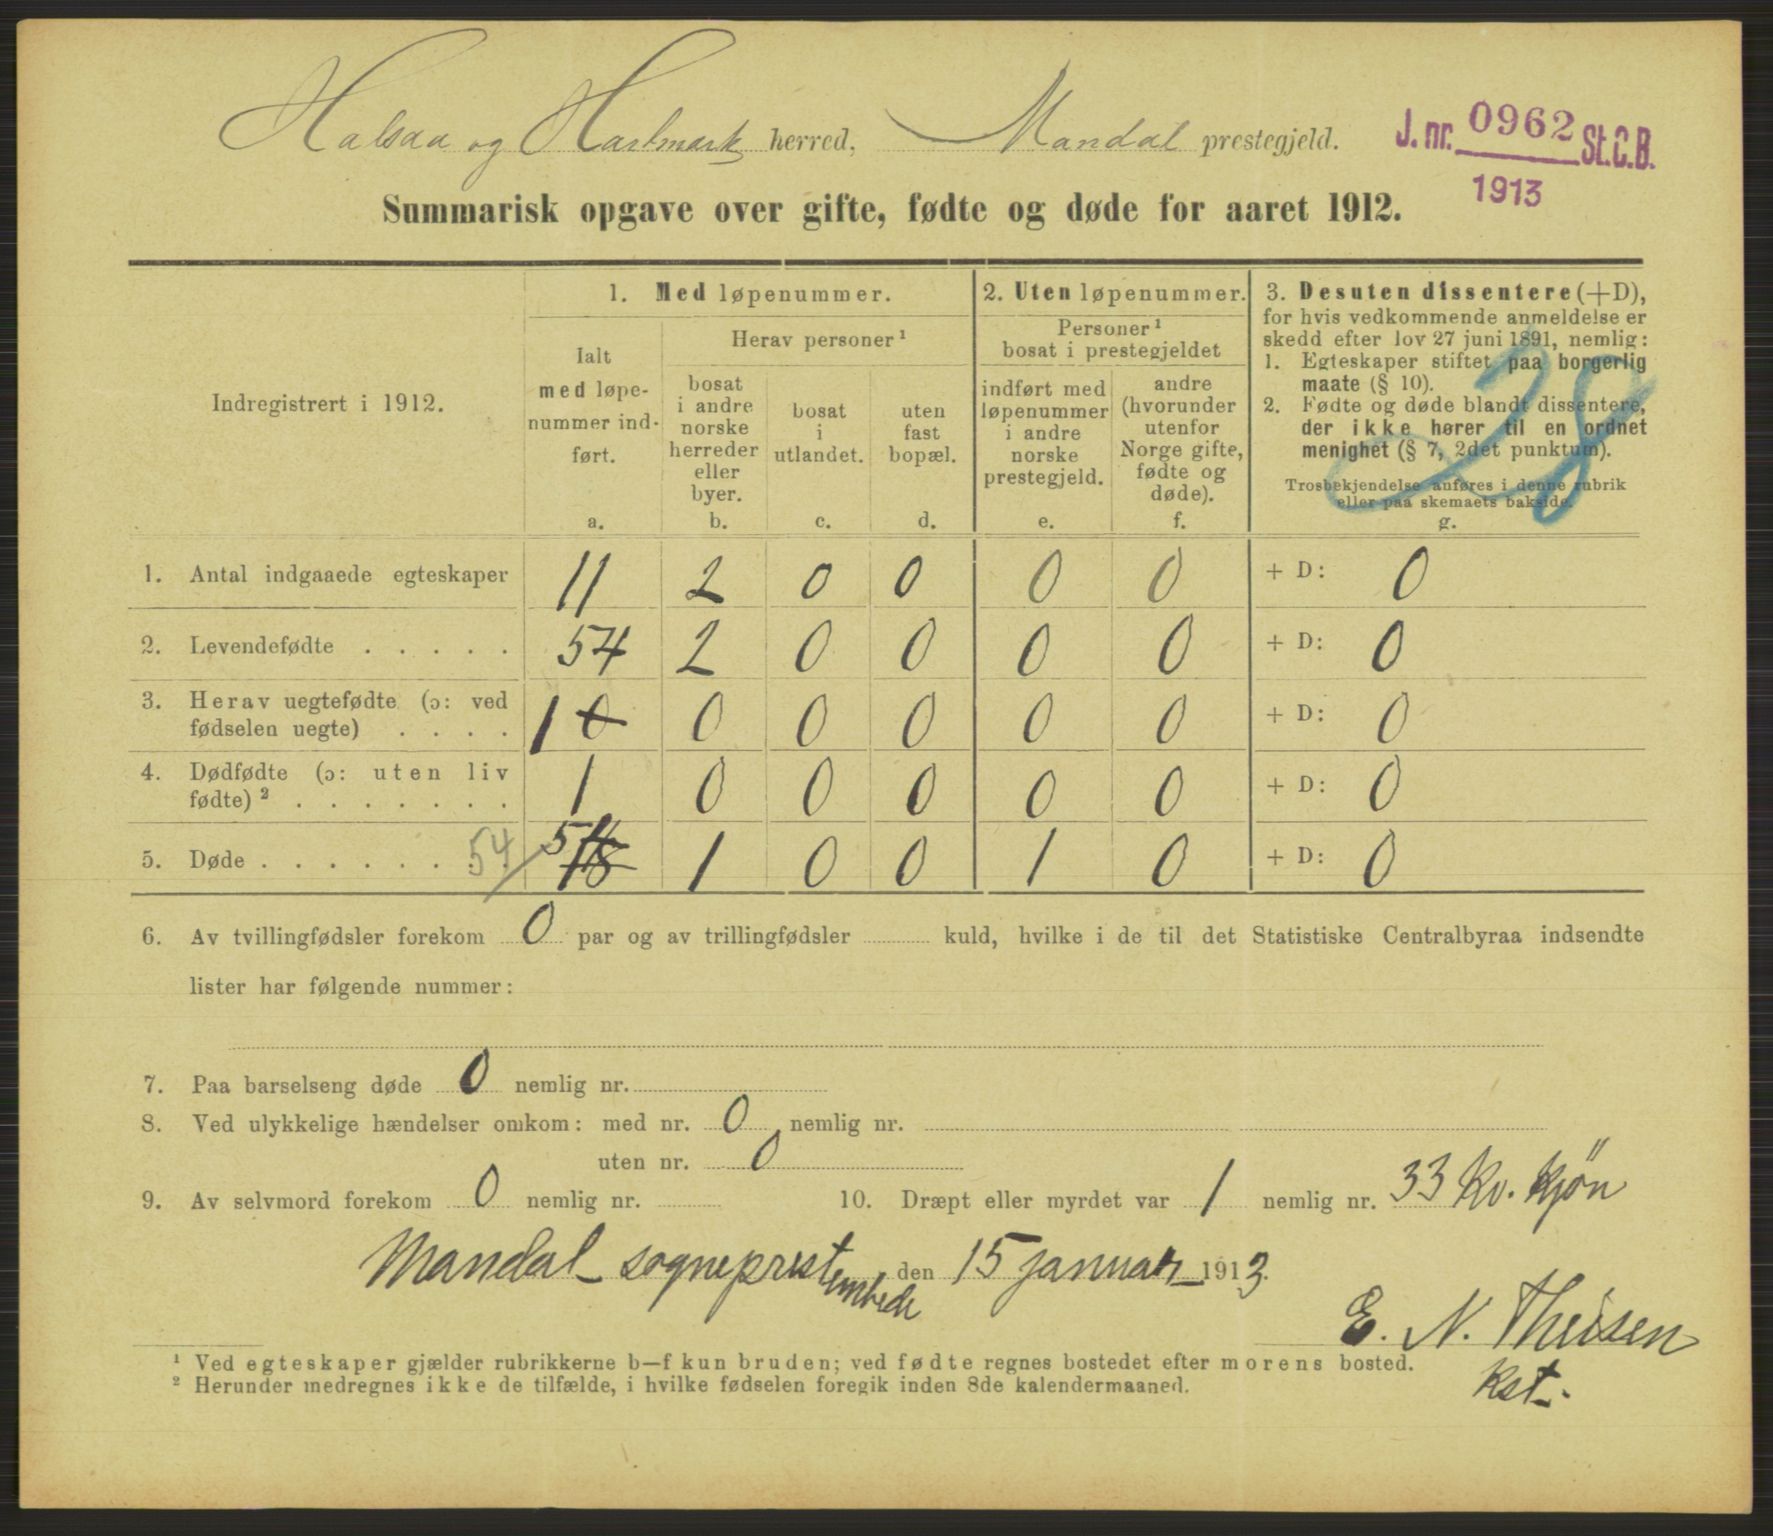 Halsaa og Hartmark herred, Mandal prestegjeld.
J. nr. 0962 St.C.B.
1913
Summarisk opgave over gifte, fødte og døde for aaret 1912.
Indregistrert i 1912.
1. Med løpenummer.
Ialt med løpenummer indført.
a.
Herav personer ¹
bosat i andre norske herreder eller byer.
b.
bosat i utlandet.
c.
uten fast bopæl.
d.
2. Uten løpenummer.
Personer ¹ bosat i prestegjeldet
indført med løpenummer i andre norske prestegjeld.
e.
andre (hvorunder utenfor Norge gifte, fødte og døde).
f.
3. Desuten dissentere (+D),
for hvis vedkommende anmeldelse er
skedd efter lov 27 juni 1891, nemlig:
1. Egteskaper stiftet paa borgerlig
maate (§ 10).
2. Fødte og døde blandt dissentere,
der ikke hører til en ordnet
menighet (§ 7, 2det punktum).
Trosbekjendelse anføres i denne rubrik
eller paa skemaets bakside.
g.
28
1. Antal indgaaede egteskaper 11 2 0 0 0 0 + D: 0
2. Levendefødte . . . . . 54 2 0 0 0 0 + D: 0
3. Herav uegtefødte (ɔ: ved
fødselen uegte) . . . . 1 0 0 0 0 0 0 + D: 0
4. Dødfødte (ɔ: uten liv
fødte) ² . . . . . . . 1 0 0 0 0 0 + D: 0
5. Døde . . . . . . 54 54 1 0 0 1 0 + D: 0
6. Av tvillingfødsler forekom 0 par og av trillingfødsler ........ kuld, hvilke i de til det Statistiske Centralbyraa indsendte
lister har følgende nummer:
7. Paa barselseng døde 0 nemlig nr.
8. Ved ulykkelige hændelser omkom: med nr. 0 nemlig nr.
uten nr. 0
9. Av selvmord forekom 0 nemlig nr. 10. Dræpt eller myrdet var 1 nemlig nr. 33 kv. kjøn
Mandal sogneprestembede den 15 januar 1913.
E. N. Theisen
Kst.
¹ Ved egteskaper gjælder rubrikkerne b—f kun bruden; ved fødte regnes bostedet efter morens bosted.
² Herunder medregnes ikke de tilfælde, i hvilke fødselen foregik inden 8de kalendermaaned.